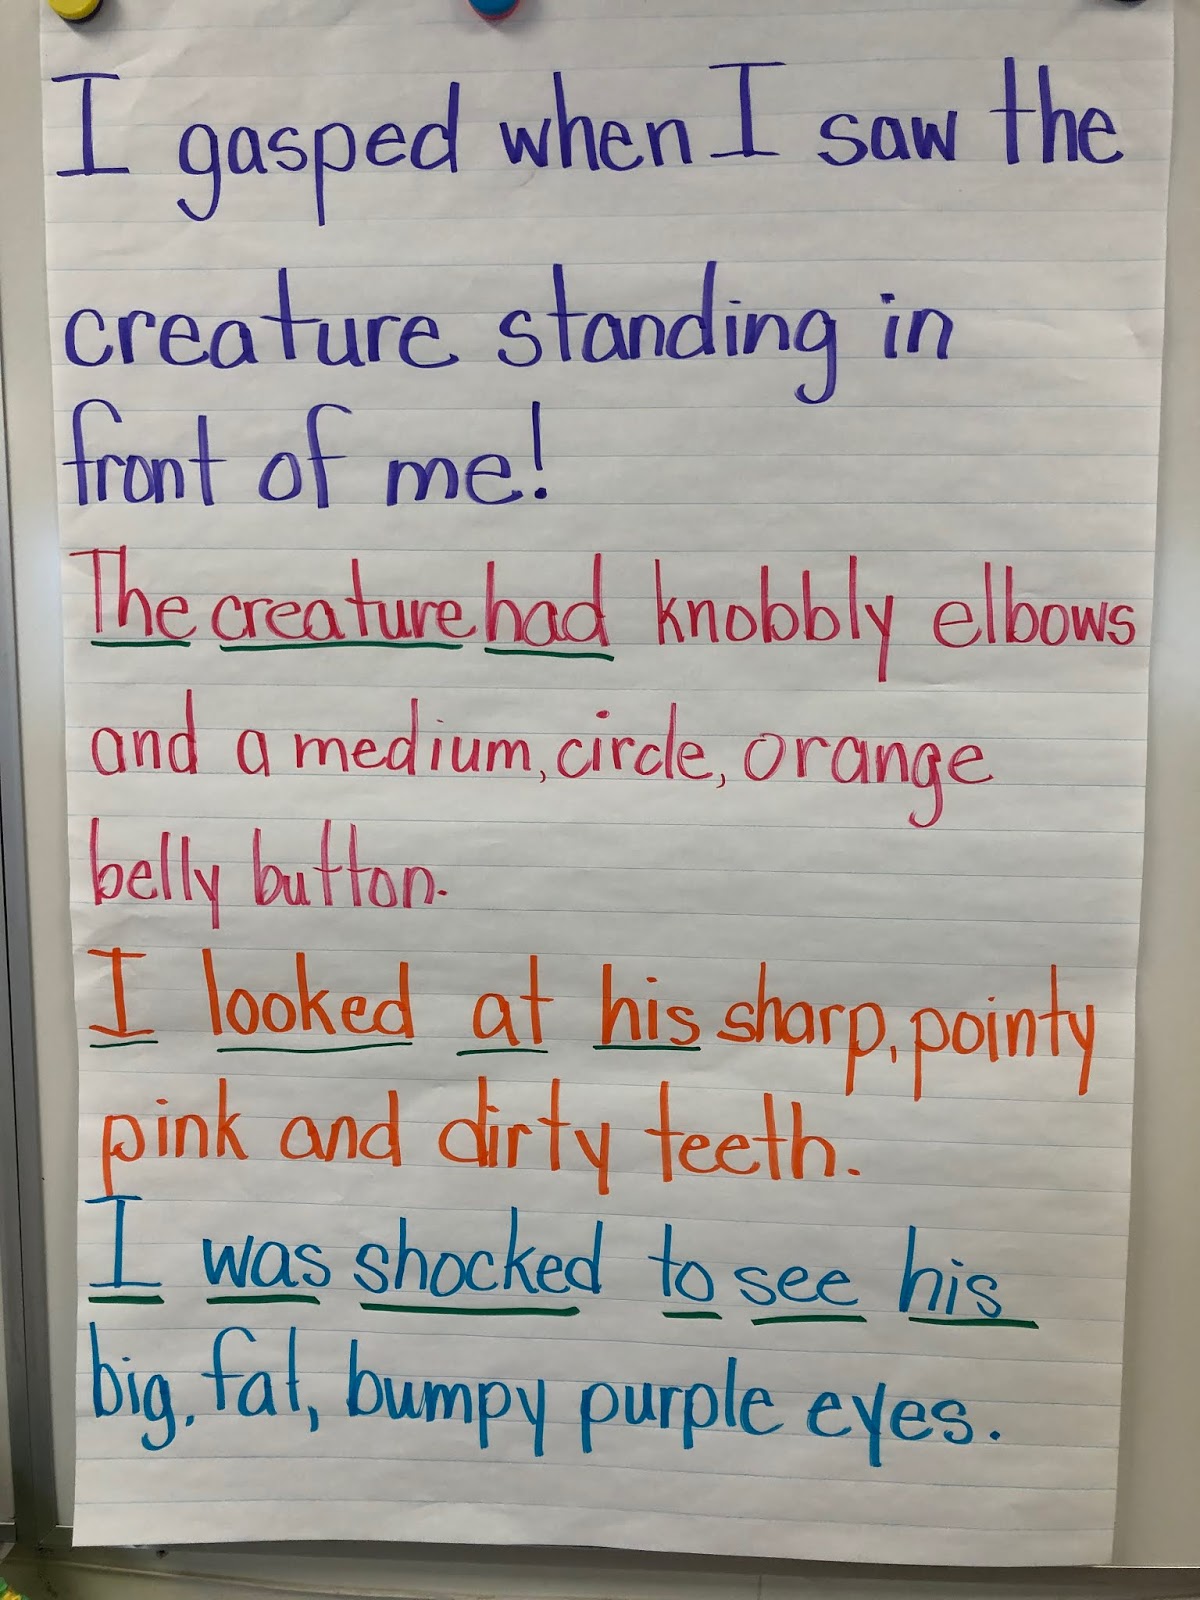 I gasped when I saw the
creature standing in
front of me!
The creature had knobbly elbows
and a medium, circle, orange
belly button.
I looked at his sharp, pointy
pink and dirty teeth.
I was shocked to see his
big, fat, bumpy purple eyes.